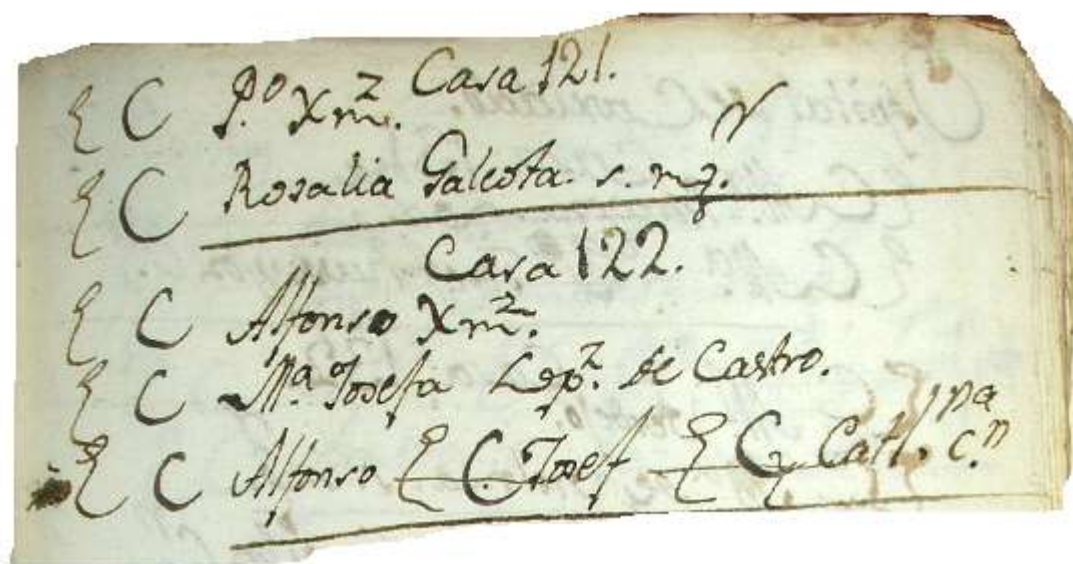 Casa 121.
E C P.º Xm.z
E C Rosalia Galeota. s. mg.r
Casa 122.
E C Alfonso Xm.z
E C M.ª Josefa Lop.z de Castro.
E C Alfonso E C Josef E C Cath.na c.n